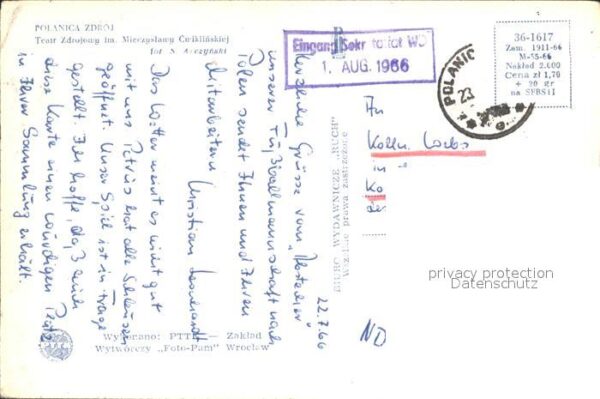 POLANICA ZDRÓJ
Teatr Zdrojowy im. Mieczysławy Ćwiklińskiej
fot S. Arczyński
Eingang Sekretariat WD
1. AUG. 1966
36-1617
Zam. 1911-66
M-55-66
Nakład 2.000
Cena zł 1,70
+ 20 gr
na SFBSiI
POLANIC
23
An
Kolln.
in
22.7.66
Herzliche Grüsse vom
unserer Fußballmannschaft nach
Polen sendet Ihnen und Ihren
Mitarbeitern
Christian Leonhardt
Das Wetter meint es nicht gut
mit uns Petrus hat alle Schleusen
geöffnet. Unser Spiel ist in Frage
gestellt. Ich hoffe, daß auch
diese Karte einen würdigen Platz
in Ihrer Sammlung erhält.
BIURO WYDAWNICZE „RUCH"
Wszelkie prawa zastrzeżone
privacy protection
Datenschutz
ND
Wykonano: PTTK — Zakład
Wytwórczy „Foto-Pam" Wrocław